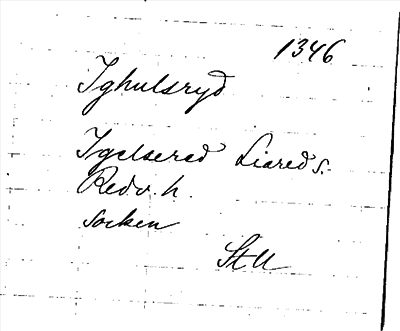 1346
Ighulsryd
Igelsered Liared s.
Redv. h.
socken
StU